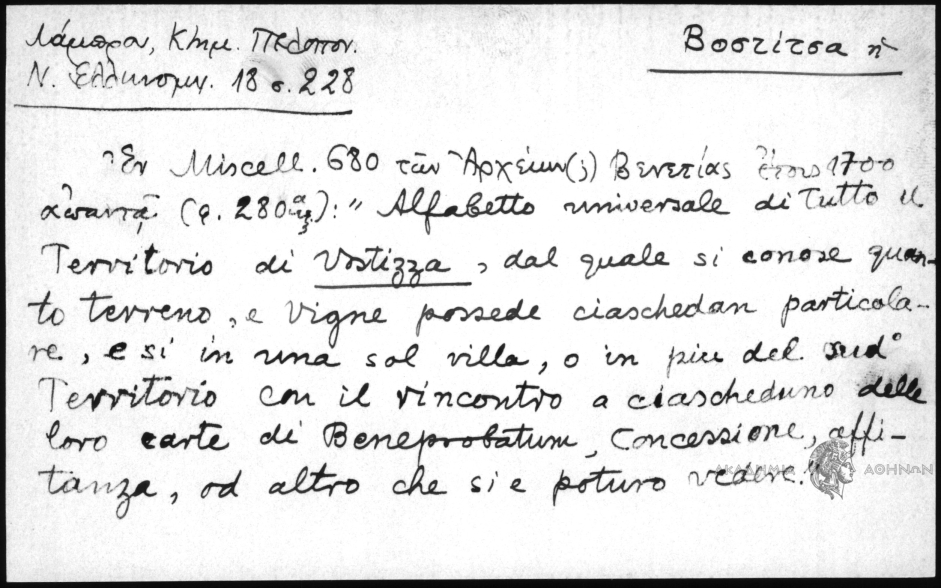 Λάμπρου, Κτημ. Πελοπον.
Ν. Ελληνομν. 18 σ. 228
Βοστίτσα ἡ
Ἐν Miscell. 680 τῶν Ἀρχείων(;) Βενετίας ἔτους 1700
ἀπαντᾷ (φ. 280): " Alfabetto universale di Tutto il
Territorio di Vostizza, dal quale si conose quan-
to terreno, e Vigne possede ciaschedan particola-
re, e si in una sol villa, o in piu del sud°
Territorio con il rincontro a ciascheduno delle
loro carte di Beneprobatum, Concessione, affi-
tanza, od altro che si e poturo vedere."
ΑΚΑΔΗΜΙΑ ΑΘΗΝΩΝ